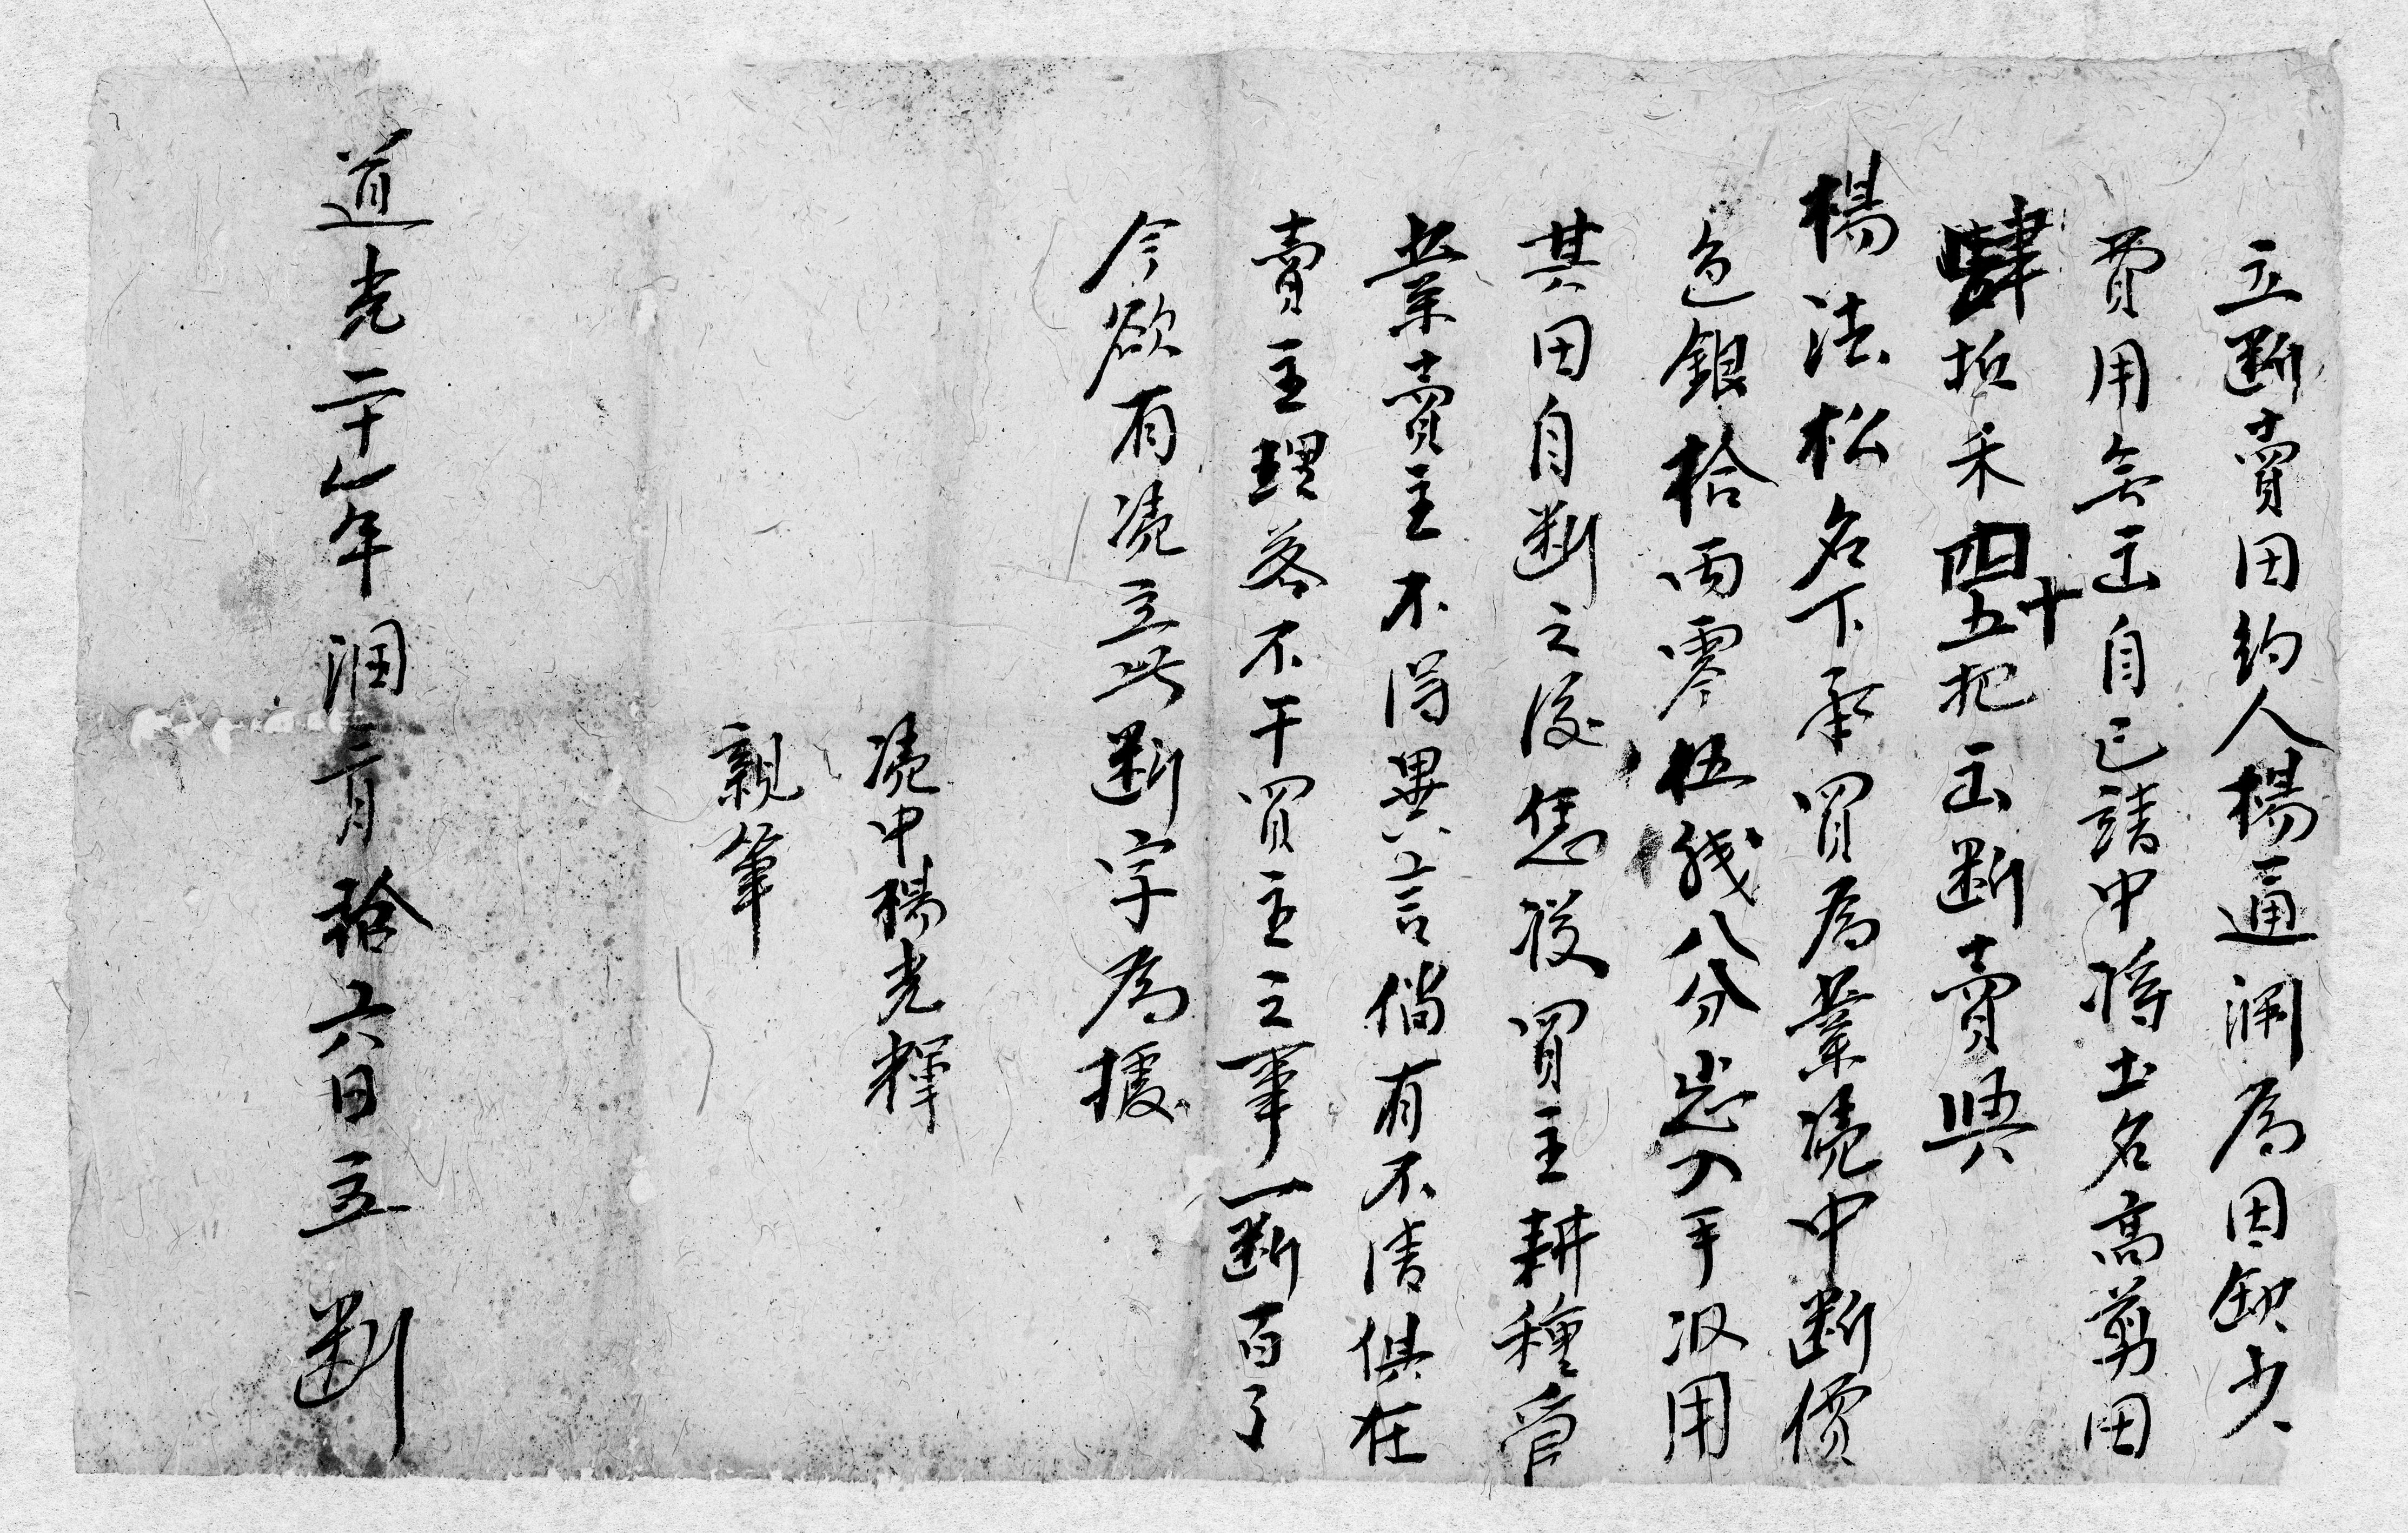 立断賣田約人楊通澗為因缺少
費用無正自己請中將土名高剪田
肆坵禾四十五把正断賣與
楊法松名下承買為業凴中断價
色銀拾両零伍銭八分岦入手收用
其田自断之後恁從買主耕種管
業賣主不得異言倘有不清俱在
賣主理落不干買主之事一断百了
今欲有凴立此断字為據
凴中楊光輝
親筆
道光二十一年潤三月拾六日立 断